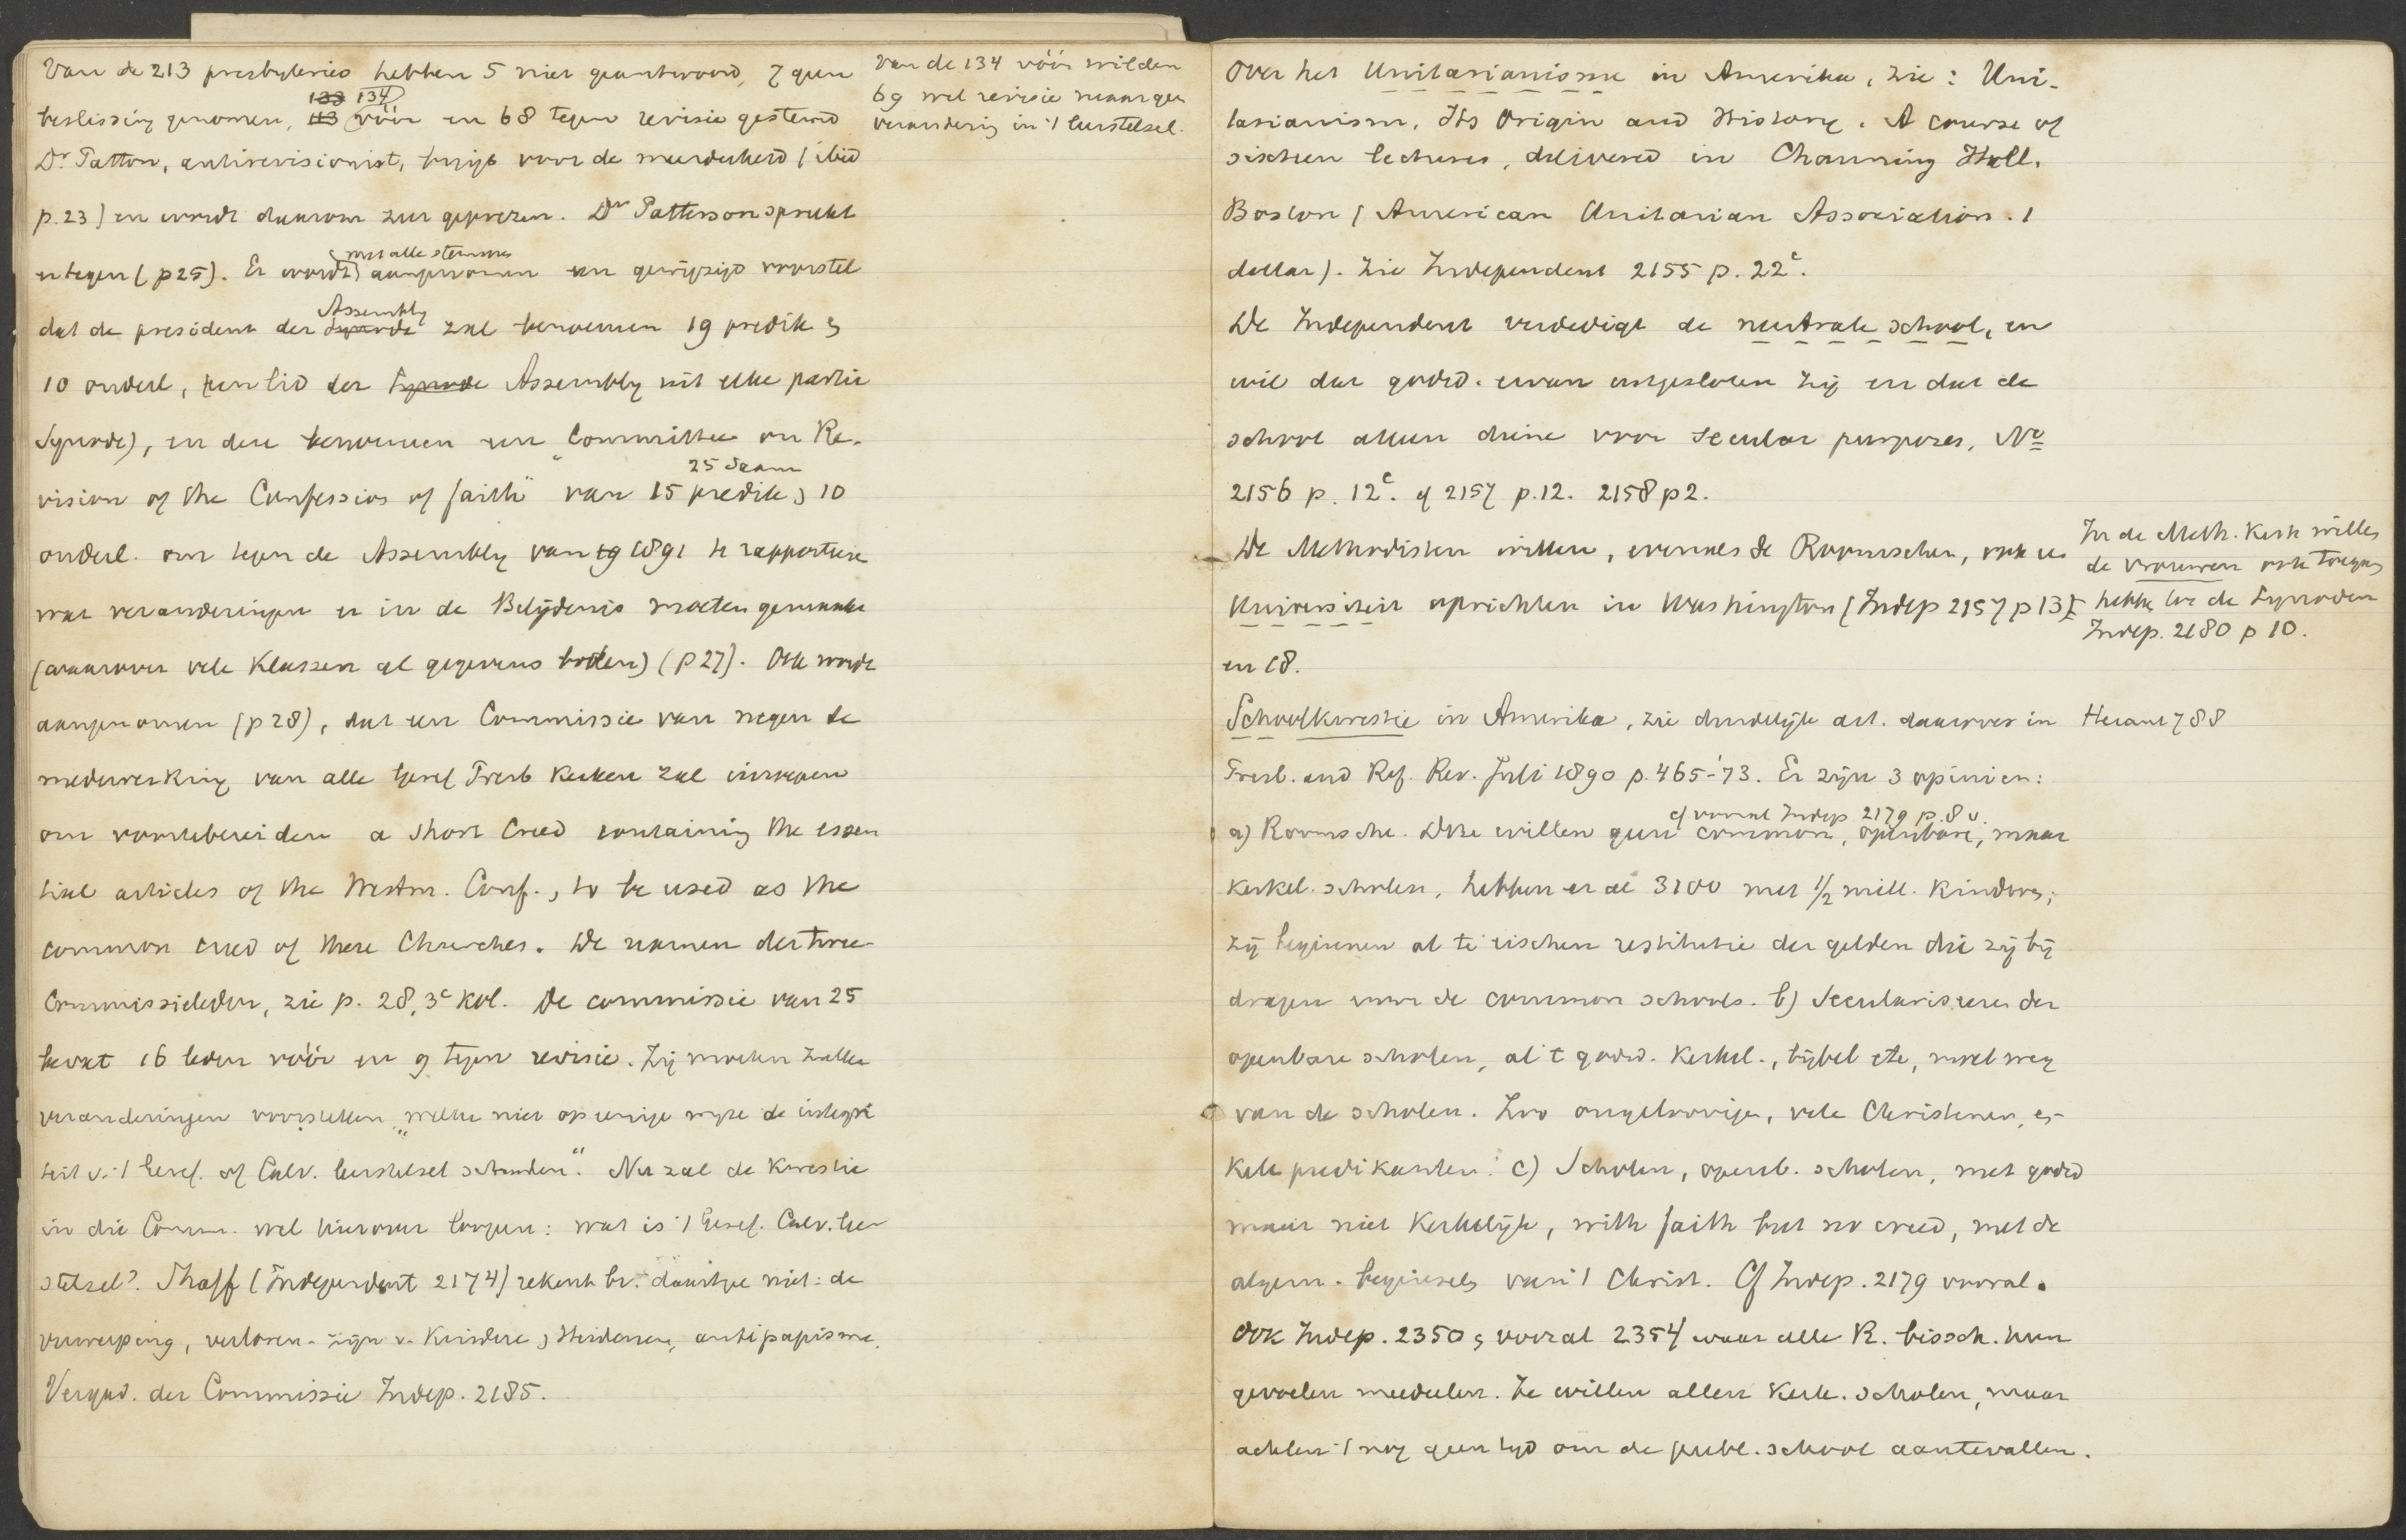 Van de 213 presbyteries hebben 5 niet geantwoord, 7 geen
beslissing genomen, 134 vóór en 68 tegen revisie gestemd
Dr Patton, antirevisionist, krijgt voor de meerderheid (ibid
p. 23) en wordt daarom zeer geprezen. Dr Patterson spreekt
er tegen (p 25). Er wordt met alle stemmen aangenomen een gewijzigd voorstel
dat de president der Assembly zal benoemen 19 predik en
10 ouderl, (een lid der Assembly uit elke partic
Synode), en deze benoemen een "Committee on Re-
vision of the Confession of faith" van 15 predik en 10 25 saam
ouderl. om tegen de Assembly van 1891 te rapporteeren
wat veranderingen er in de Belijdenis moeten gemaakt
(waarover vele Klassen al gegevens boden) (p 27). Ook wordt
aangenomen (p 28), dat een Commissie van negen de
medewerking van alle Geref Presb Kerken zal inroepen
om voortebereiden a short Creed containing the essen
tial articles of the Westm. Conf., to be used as the
common creed of these Churches. De namen der twee
Commissieleden, zie p. 28, 3e kol. De commissie van 25
bevat 16 leden vóór en 9 tegen revisie. Zij moeten zulke
veranderingen voorstellen "welke niet op eenige wijze de integri
teit v. 't Geref. of Calv. leerstelsel schaden". Nu zal de kwestie
in die Comm. wel hierover loopen: wat is 't Geref. Calv. leer
stelsel? Shaff (Independent 2174) rekent bv. daartoe niet: de
verwerping, verloren-zijn v. Kindere en Heidenen, antipapisme.
Vergad. der Commissie Indep. 2185.
Van de 134 vóór wilden
69 wel revisie maar geen
verandering in 't leerstelsel.
Over het Unitarianisme in Amerika, zie: Uni-
tarianism. Its Origin and History. A course of
sixteen lectures, delivered in Channing Hall.
Boston (American Unitarian Association. 1
dollar). Zie Independent 2155 p. 22c.
De Independent verdedigt de neutrale school, en
wil dat godsd. ervan uitgesloten zij en dat de
school alleen diene voor secular purposes, No
2156 p. 12c. cf 2157 p. 12. 2158 p 2.
De Methodisten willen, evenals de Roomschen, ook ee
Universiteit oprichten in Washington (Indep 2157 p 13)
en 18.
In de Meth. Kerk willen
de vrouwen ook toegang
hebben tot de Synoden
Indep. 2180 p 10.
Schoolkwestie in Amerika, zie duidelijk art. daarover in Heraut 788
Presb. and Ref. Rev. Juli 1890 p. 465-'73. Er zijn 3 opinien:
cf vooral Indep 2179 p. 8 v.
a) Roomsche. Deze willen geen common, openbare, maar
kerkel. scholen, hebben er al 3100 met 1/2 mill. kinderen;
zij beginnen al te eischen restitutie der gelden die zij bij
dragen voor de common schools. b) Seculariseren der
openbare scholen, al 't godsd. Kerkel., bijbel etc, moet weg
van de scholen. Zoo ongeloovigen, vele Christenen, en-
kele predikanten. c) Scholen, openb. scholen, met godsd
maar niet kerkelijk, with faith but no creed, met de
algem. beginselen van 't Christ. Cf Indep. 2179 vooral.
Ook Indep. 2350 en vooral 2354 waar alle R. bissch. hun
gevoelen meedeelen. Ze willen allen Kerk. scholen, maar
achten 't nog geen tijd om de publ. school aantevallen.